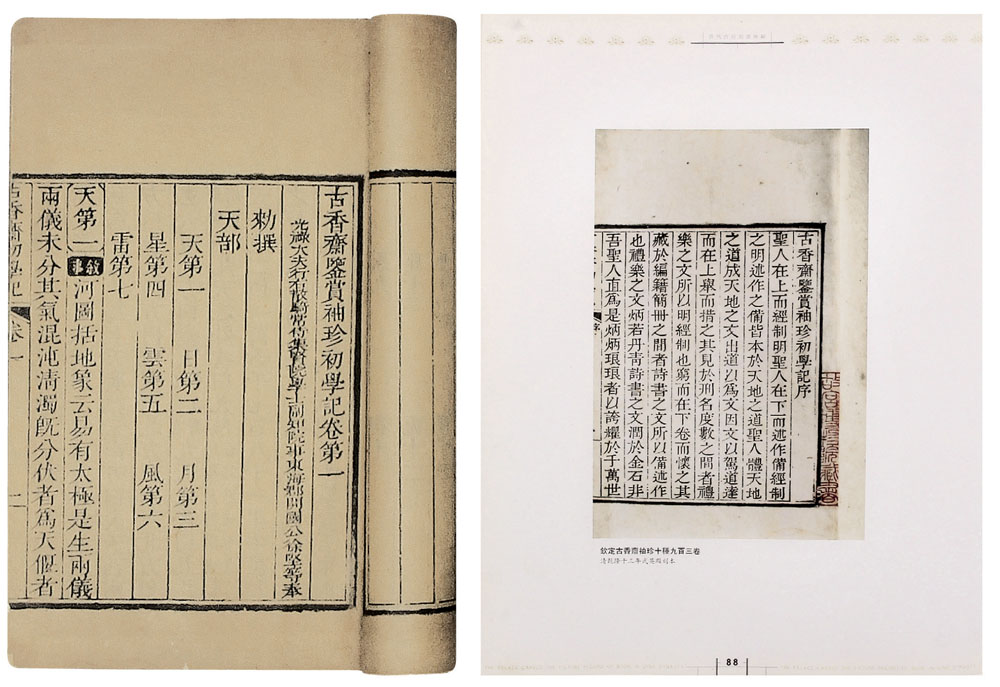 古香齋鑒賞袖珍初學記卷第一
光祿大夫行右散騎常侍集賢院學士副知院事東海郡開國公徐堅等奉
勑撰
天部
天第一 日第二 月第三
星第四 雲第五 風第六
雷第七
天第一 敘事 河圖括地象云易有太極是生兩儀
兩儀未分其氣混沌清濁既分伏者為天偃者
古香齋初學記 卷一 一
古香齋鑒賞袖珍初學記序
聖人在上而經制明聖人在下而述作備經制
之明述作之備皆本於天地之道聖人體天地
之道成天地之文出道以為文因文以駕道達
而在上舉而措之其見於刑名度數之間者禮
樂之文所以明經制也窮而在下卷而懷之其
藏於編籍簡冊之間者詩書之文所以備述作
也禮樂之文炳若丹青詩書之文潤於金石非
吾聖人直為是炳炳琅琅者以誇耀於千萬世
序
欽定古香齋袖珍十種九百三卷
清乾隆十二年武英殿刻本
88